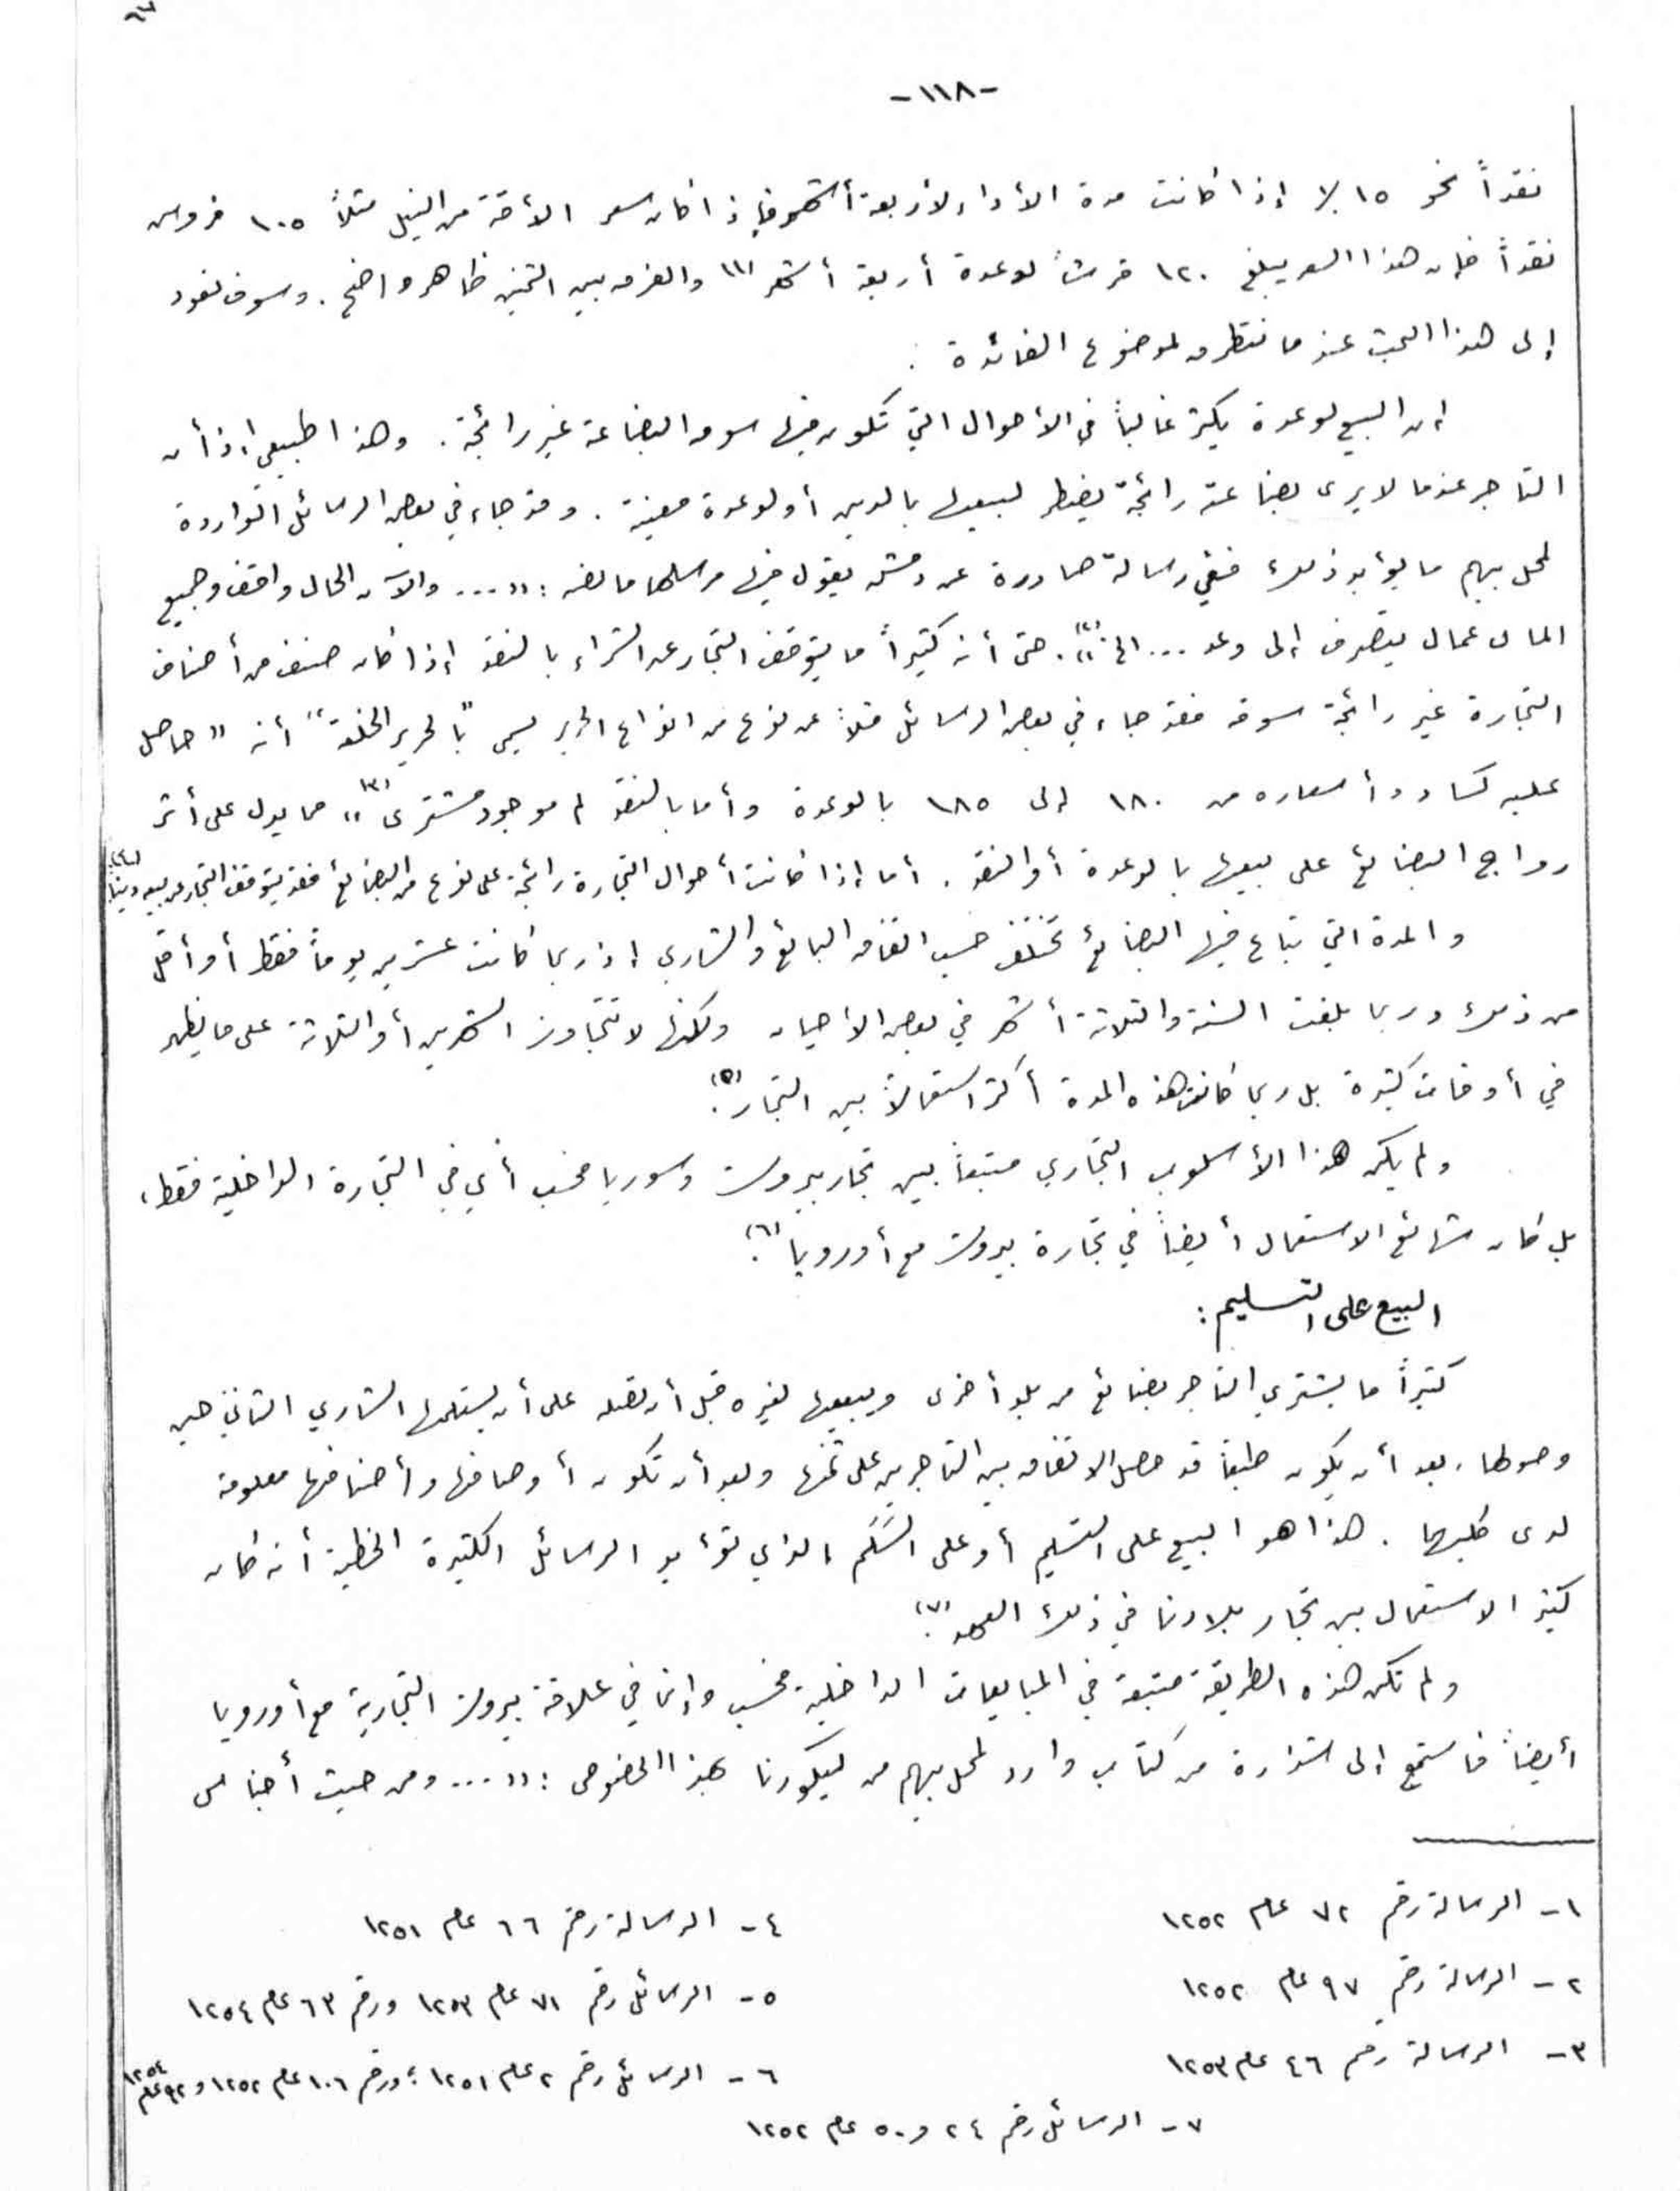 -١١٨-
نقداً نحو ١٥ ٪ إذا كانت مدة الأداء لأربعة أشهر فإذا كان سعر الأقة من النيل مثلاً ١٠٥ قروش
نقداً فإن هذا السعر يبلغ ١٢٠ قرشاً لوعدة أربعة أشهر (١) والفرق بين الثمنين ظاهر واضح . وسوف نعود
إلى هذا البحث عندما نتطرق لموضوع الفائدة .
إن البيع لوعدة يكثر غالباً في الأحوال التي تكون فيها سوق البضاعة غير رائجة . وهذا طبيعي إذ أن
التاجر عندما لا يرى بضاعته رائجة يضطر لبيعها بالدين أو لوعدة معينة . وقد جاء في بعض الرسائل الواردة
لمحل بيهم ما يؤيد ذلك ففي رسالة صادرة عن دمشق يقول فيها مرسلها ما نصه : « ... والآن الحال واقف وجميع
المال عمال يتصرف إلى وعد ... الخ » (٢) . حتى أنه كثيراً ما يتوقف التجار عن الشراء بالنقد إذا كان صنف من أصناف
التجارة غير رائجة سوقه فقد جاء في بعض الرسائل مثلاً عن نوع من انواع الحرير يسمى "بالحرير الخلقة" أنه « حاصل
عليه كساد وأسعاره من ١٨٠ إلى ١٨٥ بالوعدة وأما بالنقد لم موجود مشترى » (٣) مما يدل على أثر
رواج البضائع على بيعها بالوعدة أو النقد . أما إذا كانت أحوال التجارة رائجة على نوع من البضائع فقد يتوقف التجار عن بيعه ديناً (٤) .
والمدة التي تباع فيها البضائع تختلف حسب اتفاق البائع والشاري إذ ربما كانت عشرين يوماً فقط أو أقل
من ذلك وربما بلغت الستة والثلاثة أشهر في بعض الاحيان ولكنها لا تتجاوز الشهرين أو الثلاثة على ما يظهر
في أوقات كثيرة بل ربما كانت هذه المدة أكثر استعمالاً بين التجار (٥) .
ولم يكن هذا الأسلوب التجاري متبعاً بين تجار بيروت وسوريا فحسب أي في التجارة الداخلية فقط ،
بل كان شائع الاستعمال أيضاً في تجارة بيروت مع أوروبا (٦) .
البيع على التسليم :
كثيراً ما يشتري التاجر بضائع من بلد أخرى ويبيعها لغيره قبل أن تصله على أن يستلمها الشاري الثاني حين
وصولها ، بعد أن يكون طبعاً قد حصل الاتفاق بين التاجرين على ثمنها وبعد أن تكون أوصافها وأصنافها معلومة
لدى كليهما . هذا هو البيع على التسليم أو على السَّلَم الذي تؤيد الرسائل الكثيرة الخطية أنه كان
كثير الاستعمال بين تجار بلادنا في ذلك العهد (٧) .
ولم تكن هذه الطريقة متبعة في المبايعات الداخلية فحسب وإنما في علاقة بيروت التجارية مع أوروبا
أيضاً فاستمع إلى شذارة من كتاب وارد لمحل بيهم من ليكورنا بهذا الخصوص : « ... ومن حيث أجناس
١- الرسالة رقم ٧٢ عام ١٢٥٢
٢- الرسالة رقم ٩٧ عام ١٢٥٢
٣- الرسالة رقم ٤٦ عام ١٢٥٣
٤- الرسالة رقم ٦٦ عام ١٢٥١
٥- الرسائل رقم ٧١ عام ١٢٥٣ ورقم ٦٣ عام ١٢٥٤
٦- الرسائل رقم ٢ عام ١٢٥١ ؛ ورقم ١٠٦ عام ١٢٥٢ و ٩٢ عام ١٢٥٤
٧- الرسائل رقم ٢٤ و ٥٠ عام ١٢٥٢